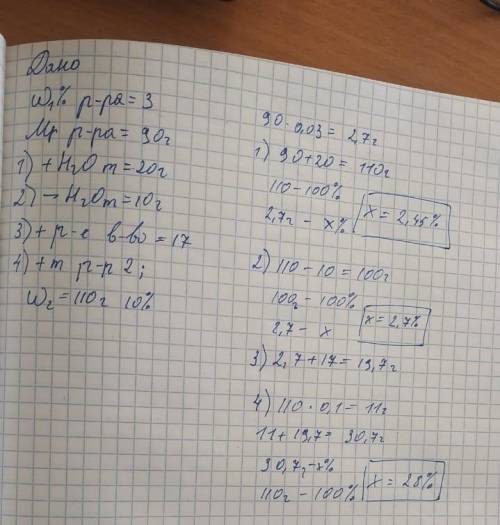 Дано
W₁% р-ра = 3
Mр р-ра = 90г
1) + H₂O m = 20г
2) → H₂O m = 10г
3) + р-е в-во = 17
4) + m р-р 2;
W₂ = 110г 10%
90 · 0,03 = 2,7г
1) 90+20 = 110г
110 - 100%
2,7г - x%
x = 2,45%
2) 110 - 10 = 100г
100г - 100%
2,7 - x
x = 2,7%
3) 2,7 + 17 = 19,7г
4) 110 · 0,1 = 11г
11 + 19,7 = 30,7г
30,7г - x%
110г - 100%
x = 28%